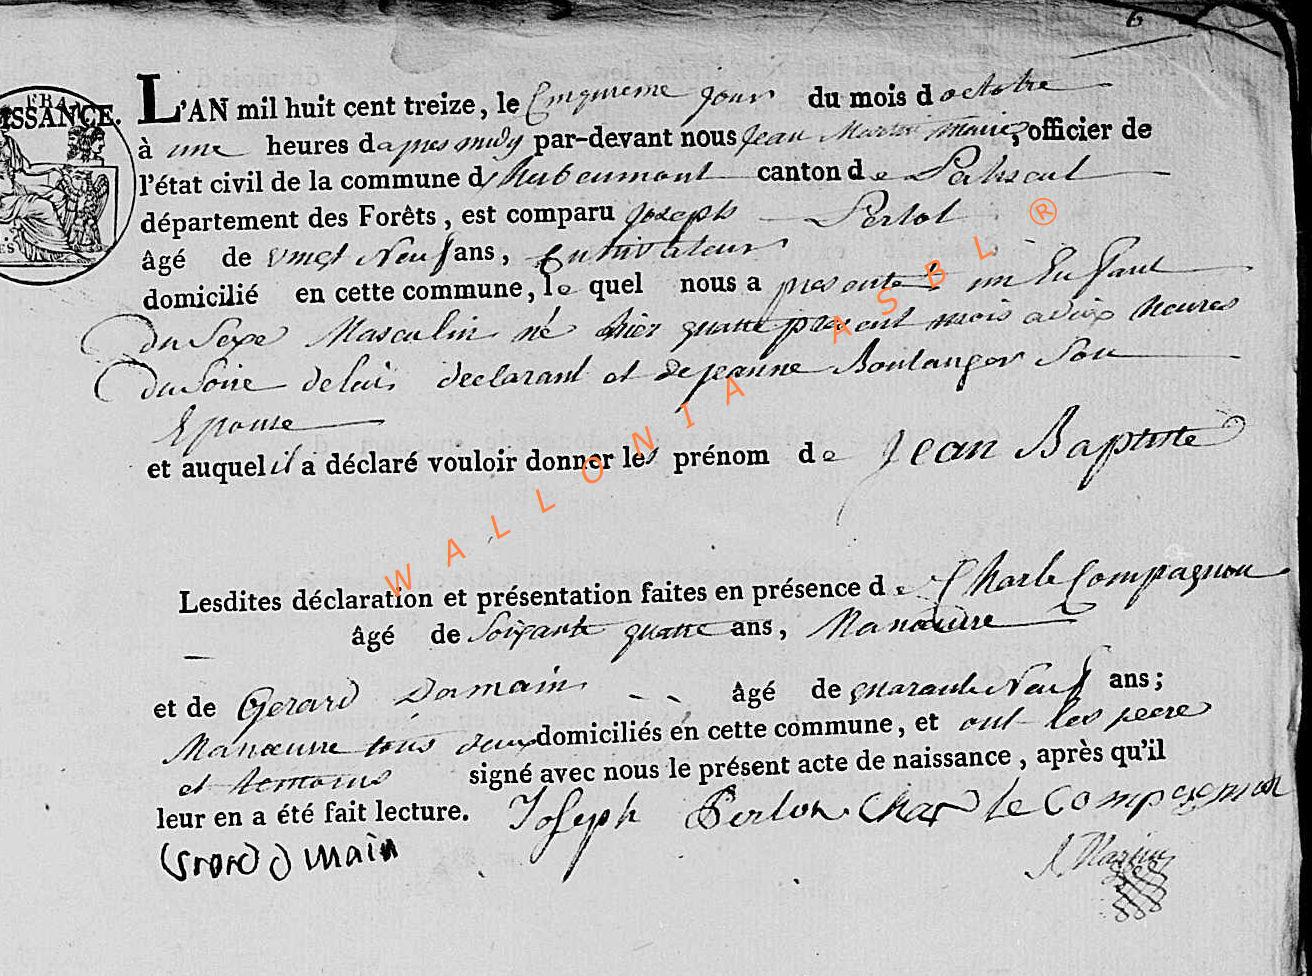 6
FRA
ISSANCE.
L'AN mil huit cent treize, le Cinquieme jour du mois d octobre
à une heures d apres midy par-devant nous Jean Martin maire, officier de
l'état civil de la commune d canton de
département des Forêts, est comparu Joseph Perlot
âgé de vingt Neuf ans, Cultivateur
domicilié en cette commune, le quel nous a presenté un Enfant
du Sexe Masculin né hier quatre present mois a dix heures
du Soire de lui declarant et de jeanne Boulanger Son
Epouse
et auquel il a déclaré vouloir donner les prénom de Jean Baptiste
Lesdites déclaration et présentation faites en présence de Charle Compagnon
âgé de Soixante quatre ans, Manœuvre
et de Gerard Domain âgé de quarante Neuf ans;
Manœuvre tous deux domiciliés en cette commune, et ont les peere
et temoins signé avec nous le présent acte de naissance, après qu'il
leur en a été fait lecture. Joseph Perlot Charle Compagnon
Domain
J Martin
WALLONIA ASBL ®